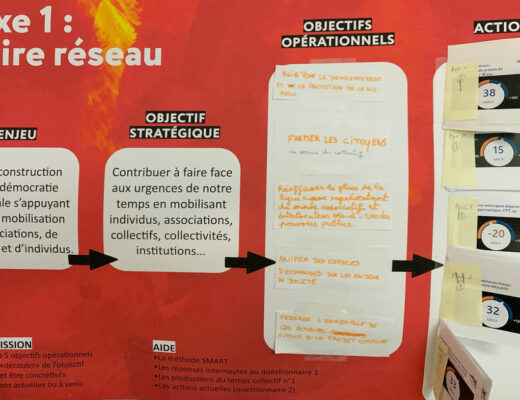 xe 1 :
ire réseau
ENJEU
construction
démocratie
le s'appuyant
mobilisation
ciations, de
et d'individus.
OBJECTIF
STRATÉGIQUE
Contribuer à faire face
aux urgences de notre
temps en mobilisant
individus, associations,
collectifs, collectivités,
institutions...
OBJECTIFS
OPÉRATIONNELS
AGIR POUR LE DEVELOPPEMENT
ET DE LA PROTECTION DE LA VIE
ASSO.
FORMER LES CITOYENS
au service du collectif
Réaffirmer la place de la
ligue comme représentant
du monde associatif et
interlocuteur vis-à-vis des
pouvoirs publics.
ANIMER DES ESPACES
D'ECHANGES SUR LES ENJEUX
DE SOCIÉTÉ
FEDERER L'ENSEMBLE DE
CES ACTEURS
AUTOUR D'UN PROJET COMMUN
ACTION
38
15
-20
32
ISSION
5 objectifs opérationnels
«découler» de l'objectif
et être concrétisés
ons actuelles ou à venir
AIDE
•La méthode SMART
•Les réponses Internautes au questionnaire 1
•Les productions du temps collectif n°1
•Les actions actuelles (questionnaire 2)